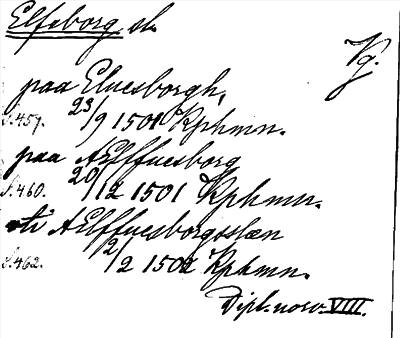 Elfsborg, sl.
Vg.
paa Eluesborgh,
S.457. 23/9 1501 Kphmn.
paa AElffuesborg
S.460. 20/12 1501 Kphmn.
ti AElffuesborgsslæn
S.462. 2/2 1502 Kphmn.
Dipl. norv. VIII.